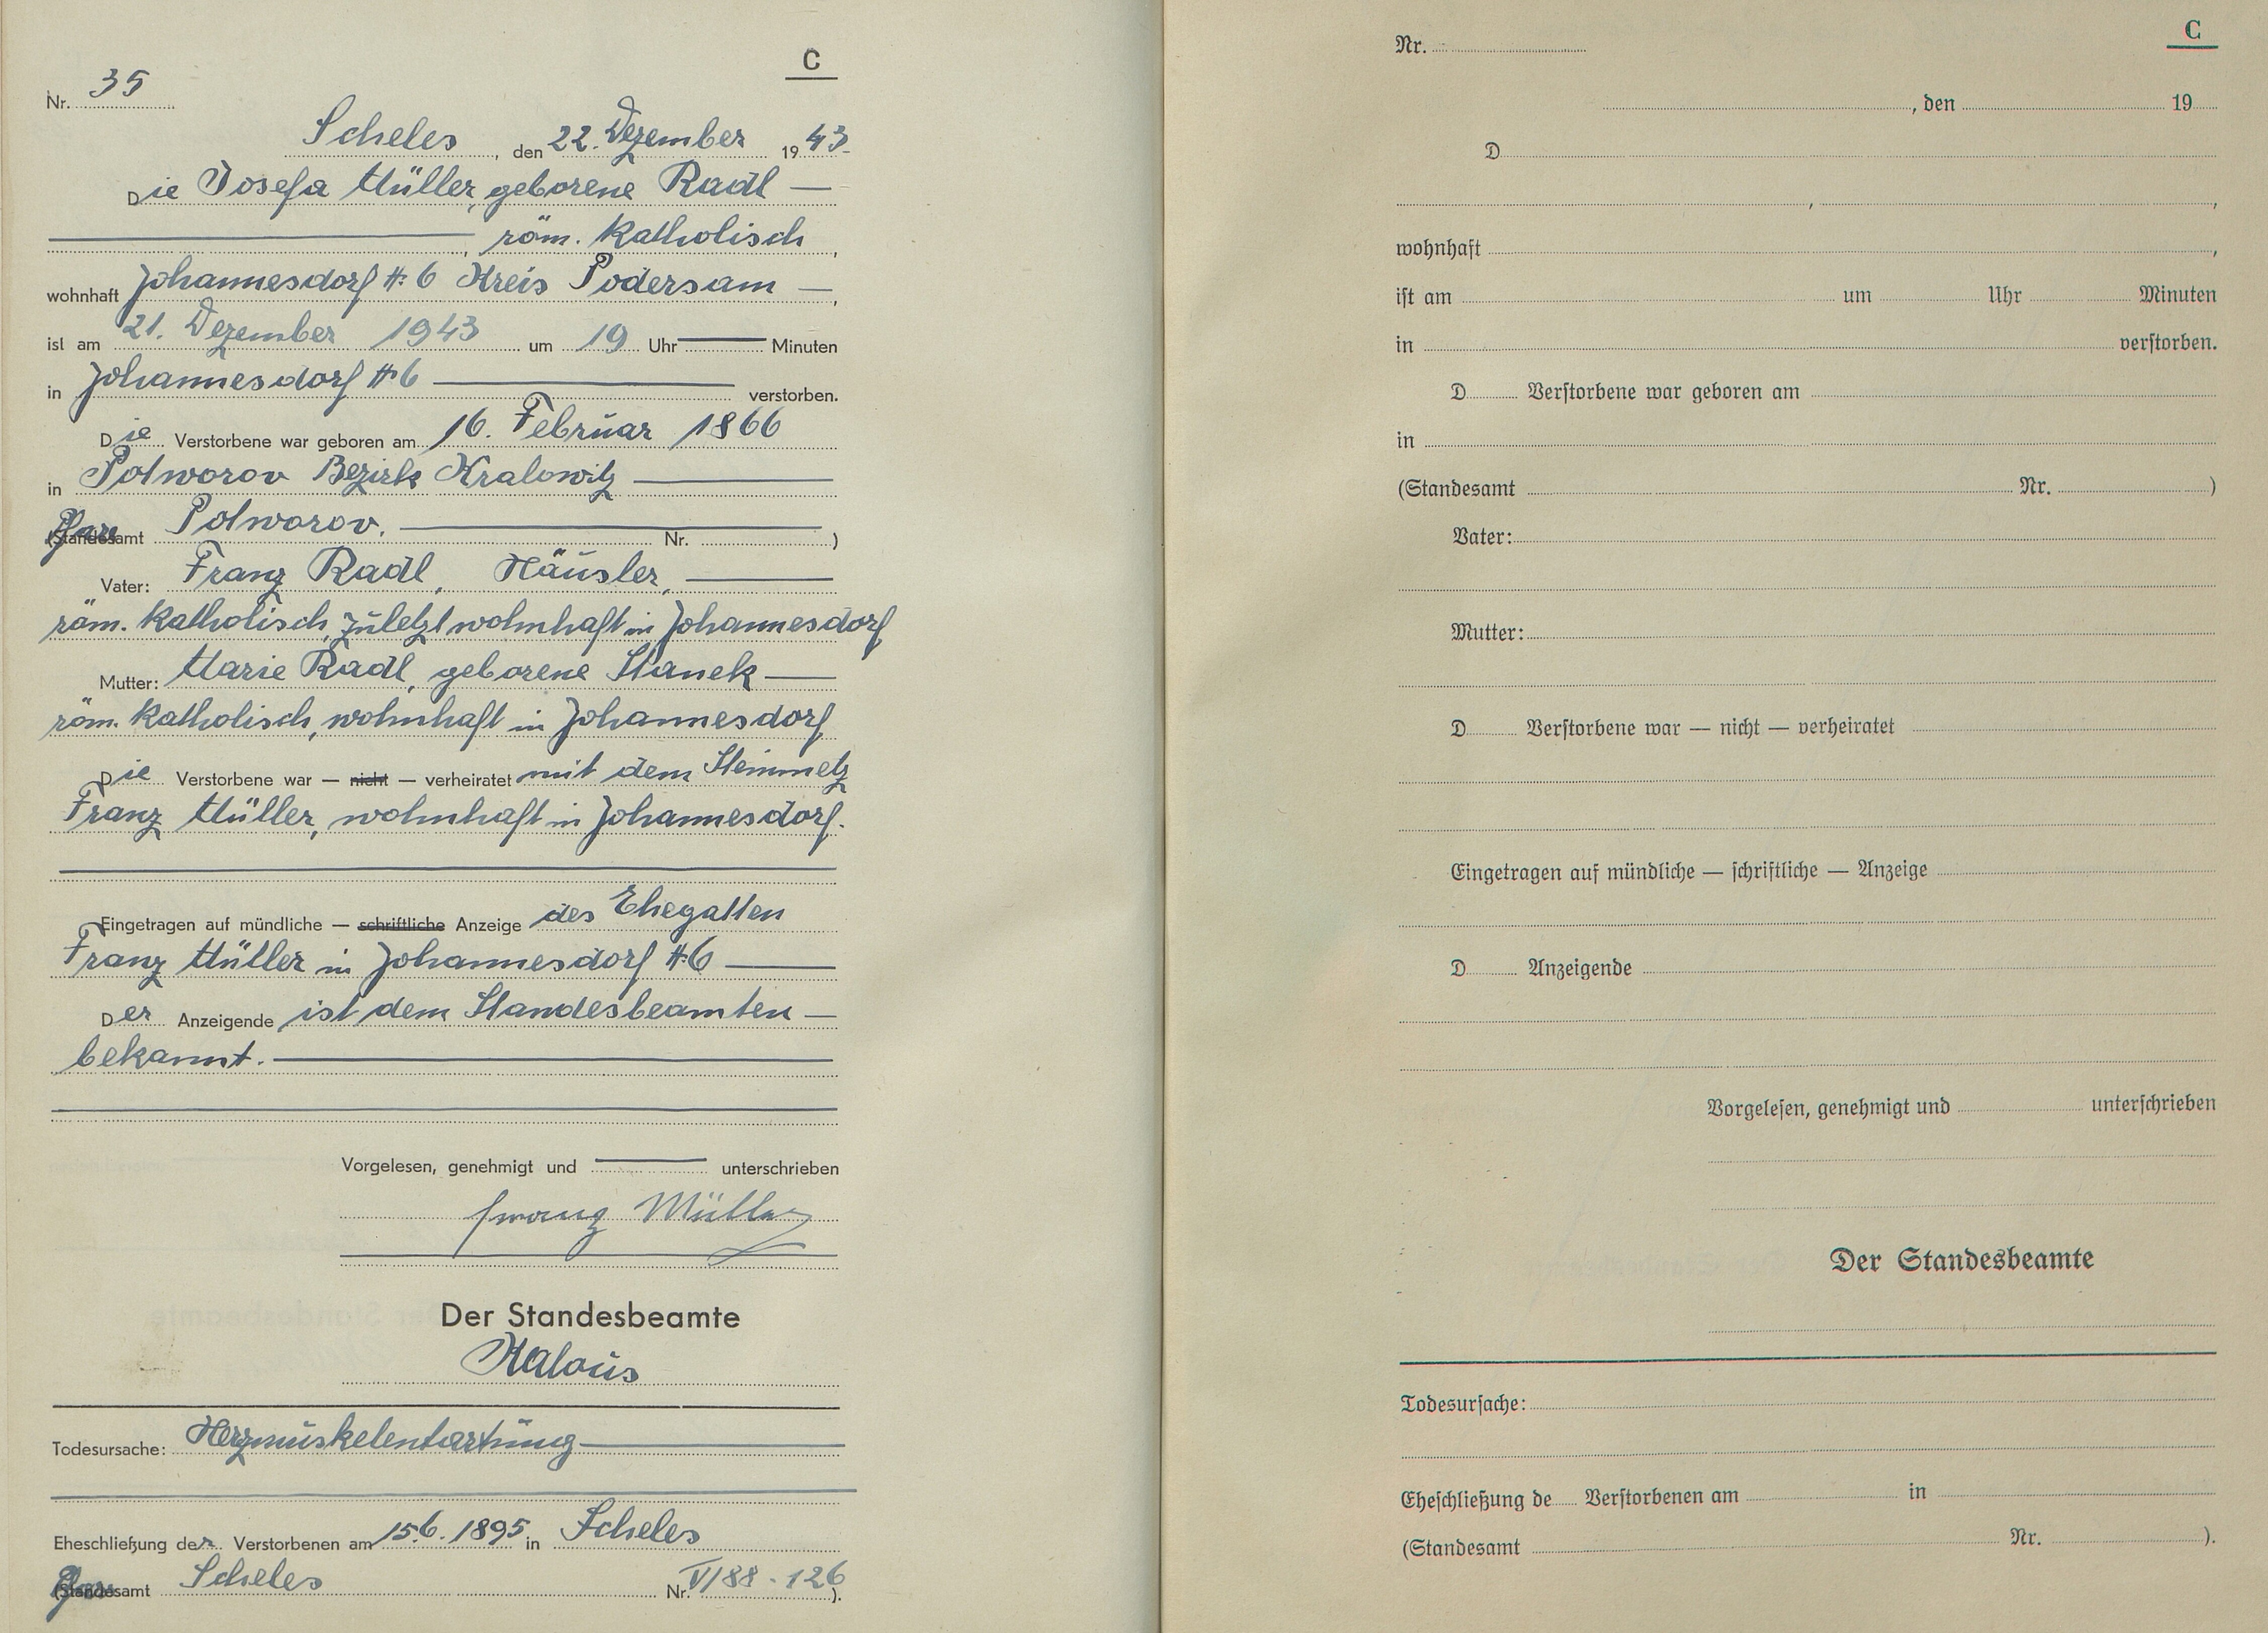 C
Nr. 35
Scheles, den 22. Dezember 1943.
Die Josefa Müller, geborene Radl —
, röm. katholisch,
wohnhaft Johannesdorf #6 Kreis Podersam —,
ist am 21. Dezember 1943 um 19 Uhr — Minuten
in Johannesdorf #6 — verstorben.
Die Verstorbene war geboren am 16. Februar 1866
in Potworov Bezirk Kralowitz —
(Pfarramt Potworov. — Nr. )
Vater: Franz Radl, Häusler, —
röm. katholisch, zuletzt wohnhaft in Johannesdorf
Mutter: Marie Radl, geborene Stanek —
röm. katholisch, wohnhaft in Johannesdorf
Die Verstorbene war — nicht — verheiratet mit dem Steinmetz
Franz Müller, wohnhaft in Johannesdorf.
Eingetragen auf mündliche — schriftliche Anzeige des Ehegatten
Franz Müller in Johannesdorf #6 —
Der Anzeigende ist dem Standesbeamten —
bekannt. —
Vorgelesen, genehmigt und — unterschrieben
Franz Müller
Der Standesbeamte
Kalous
Todesursache: Herzmuskelentartung —
Eheschließung der Verstorbenen am 15.6.1895 in Scheles
(Pfarramt Scheles Nr. VI/88 - 126 ).
C
Nr.
, den 19
D
, ,
wohnhaft ,
ist am um Uhr Minuten
in verstorben.
D Verstorbene war geboren am
in
(Standesamt Nr. )
Vater:
Mutter:
D Verstorbene war — nicht — verheiratet
Eingetragen auf mündliche — schriftliche — Anzeige
D Anzeigende
Vorgelesen, genehmigt und unterschrieben
Der Standesbeamte
Todesursache:
Eheschließung de Verstorbenen am in
(Standesamt Nr. ).